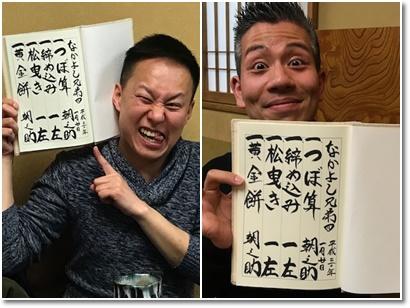 なかよし兄弟四
一月廿日
一 つぼ算 朝之助
一 締め込み 一左
一 松曳き 一左
一 黄金餅 朝之助
なかよし兄弟四
一月廿日
一 つぼ算 朝之助
一 締め込み 一左
一 松曳き 一左
一 黄金餅 朝之助